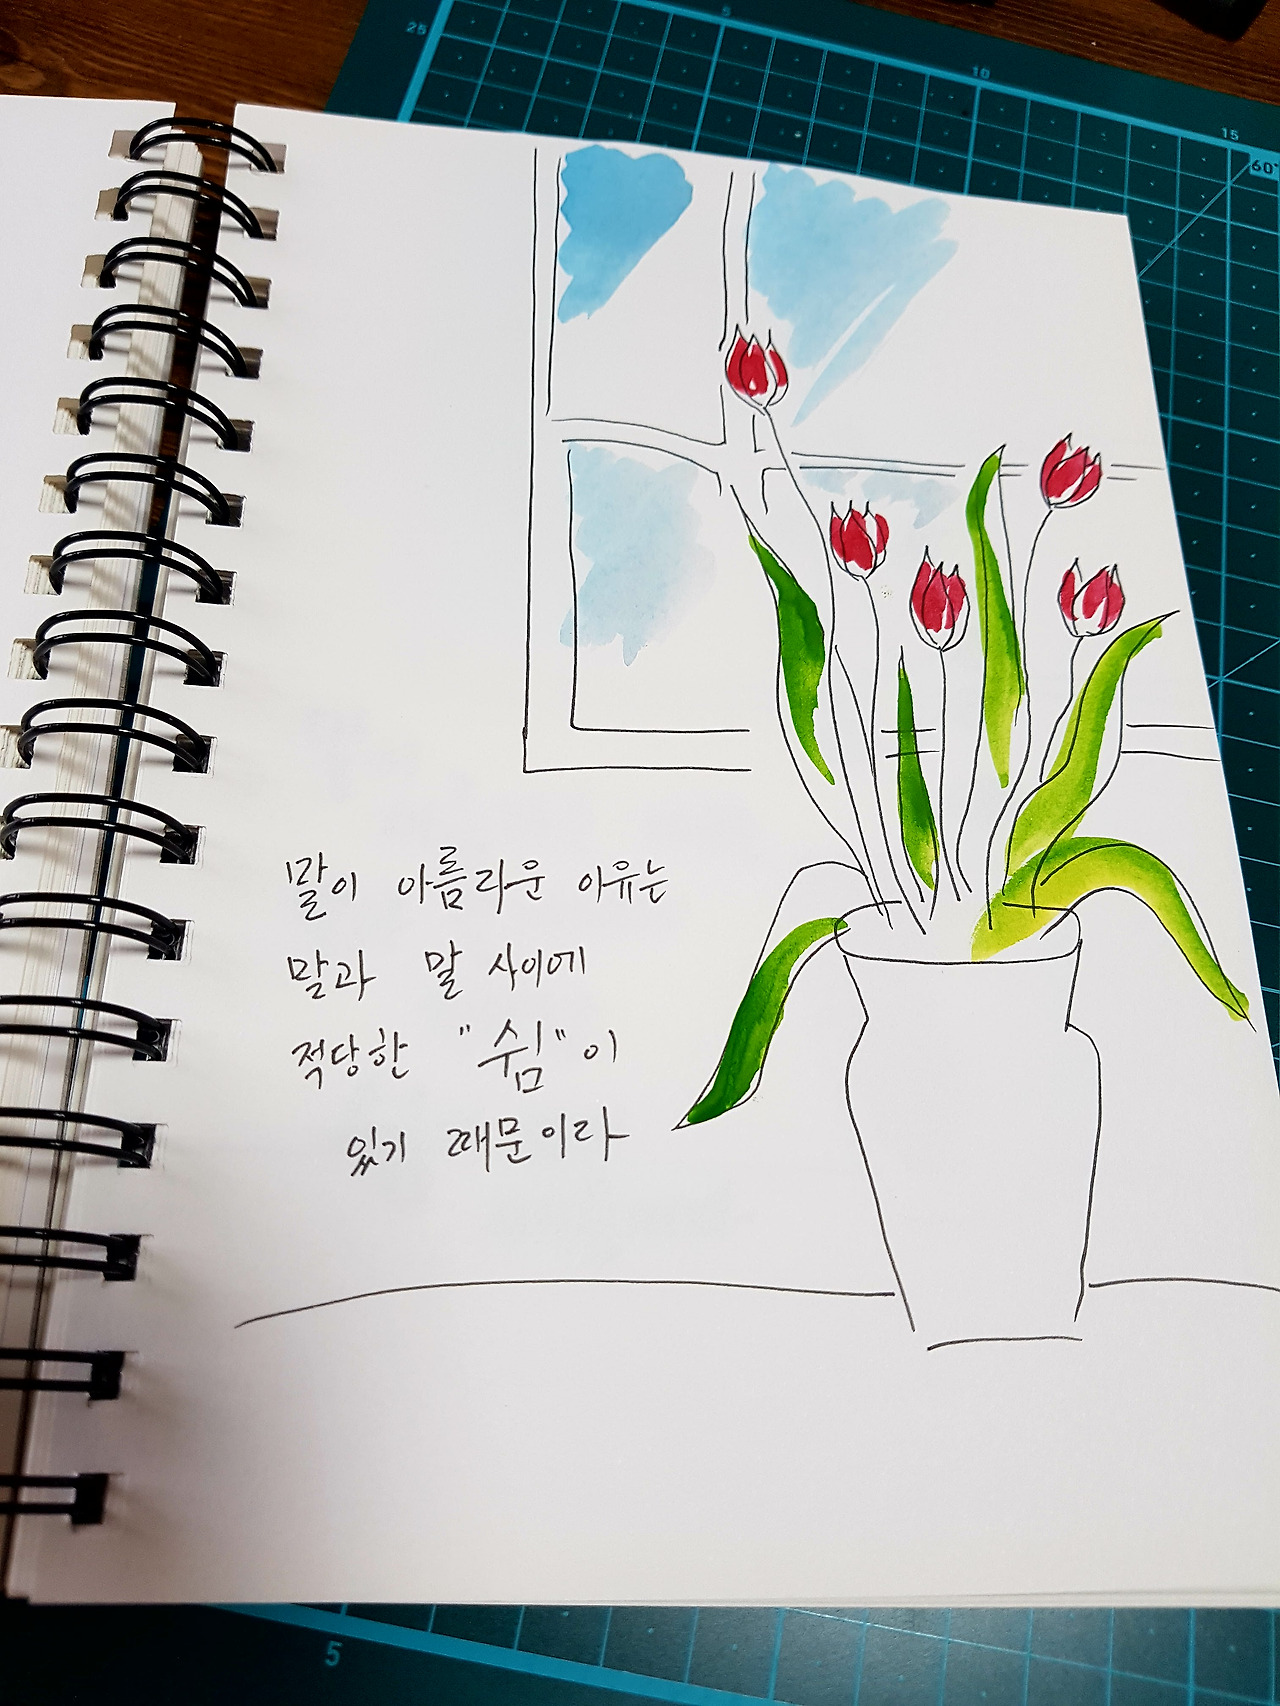 25
5
10
15
60°
말이 아름라운 이유는
말과 말 사이에
적당한 "쉼"이
있기 때문이라
5